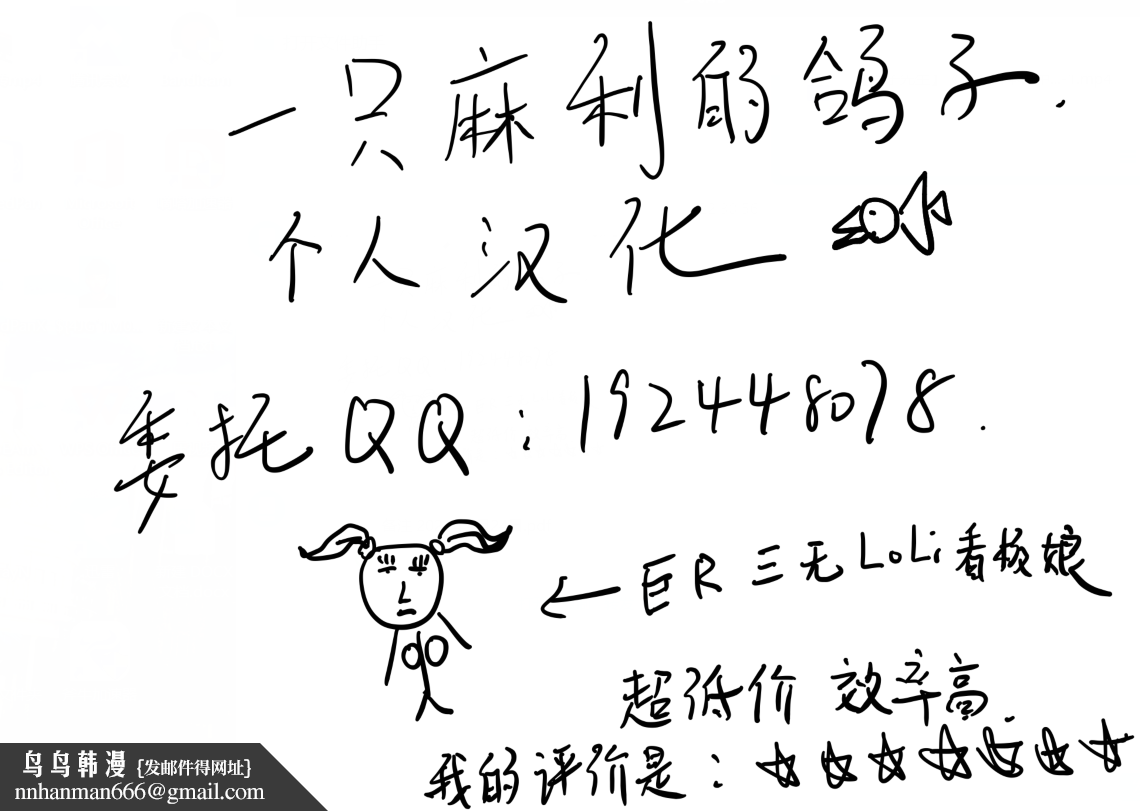 一只麻利的鸽子.
个人汉化
委托QQ:1924448078.
ER三无LoLi看板娘
超低价 效率高.
我的评价是:☆☆☆☆☆☆☆
鸟鸟韩漫{发邮件得网址}
nnhanman666@gmail.com